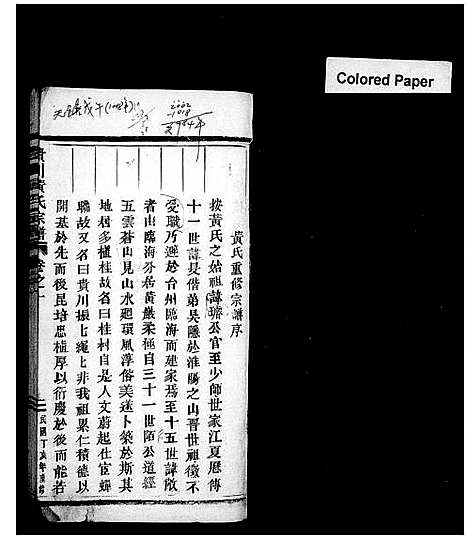 Colored Paper
2002
1018
984年
黃氏重修宗譜序
按黃氏之始祖諱瓊公官至少師世家江夏歷傳
十一世諱晃偕弟吳隱於淮陽之山晉世祖徵不
受職乃遯於台州臨海而建家焉至十五世諱散
者由臨海分居黃巖柔極自三十一世陌公道經
五雲蒼山見山水廻環風淳俗美遂卜築於斯其
地居多植桂故名曰桂村自是人文蔚起仕宦蟬
聯故又名曰貴川振上繩上非我祖累仁積德以
開基於先而後昆培忠植厚以衍慶於後而能若
貴川黃氏宗譜
卷之一
民國丁亥年重修